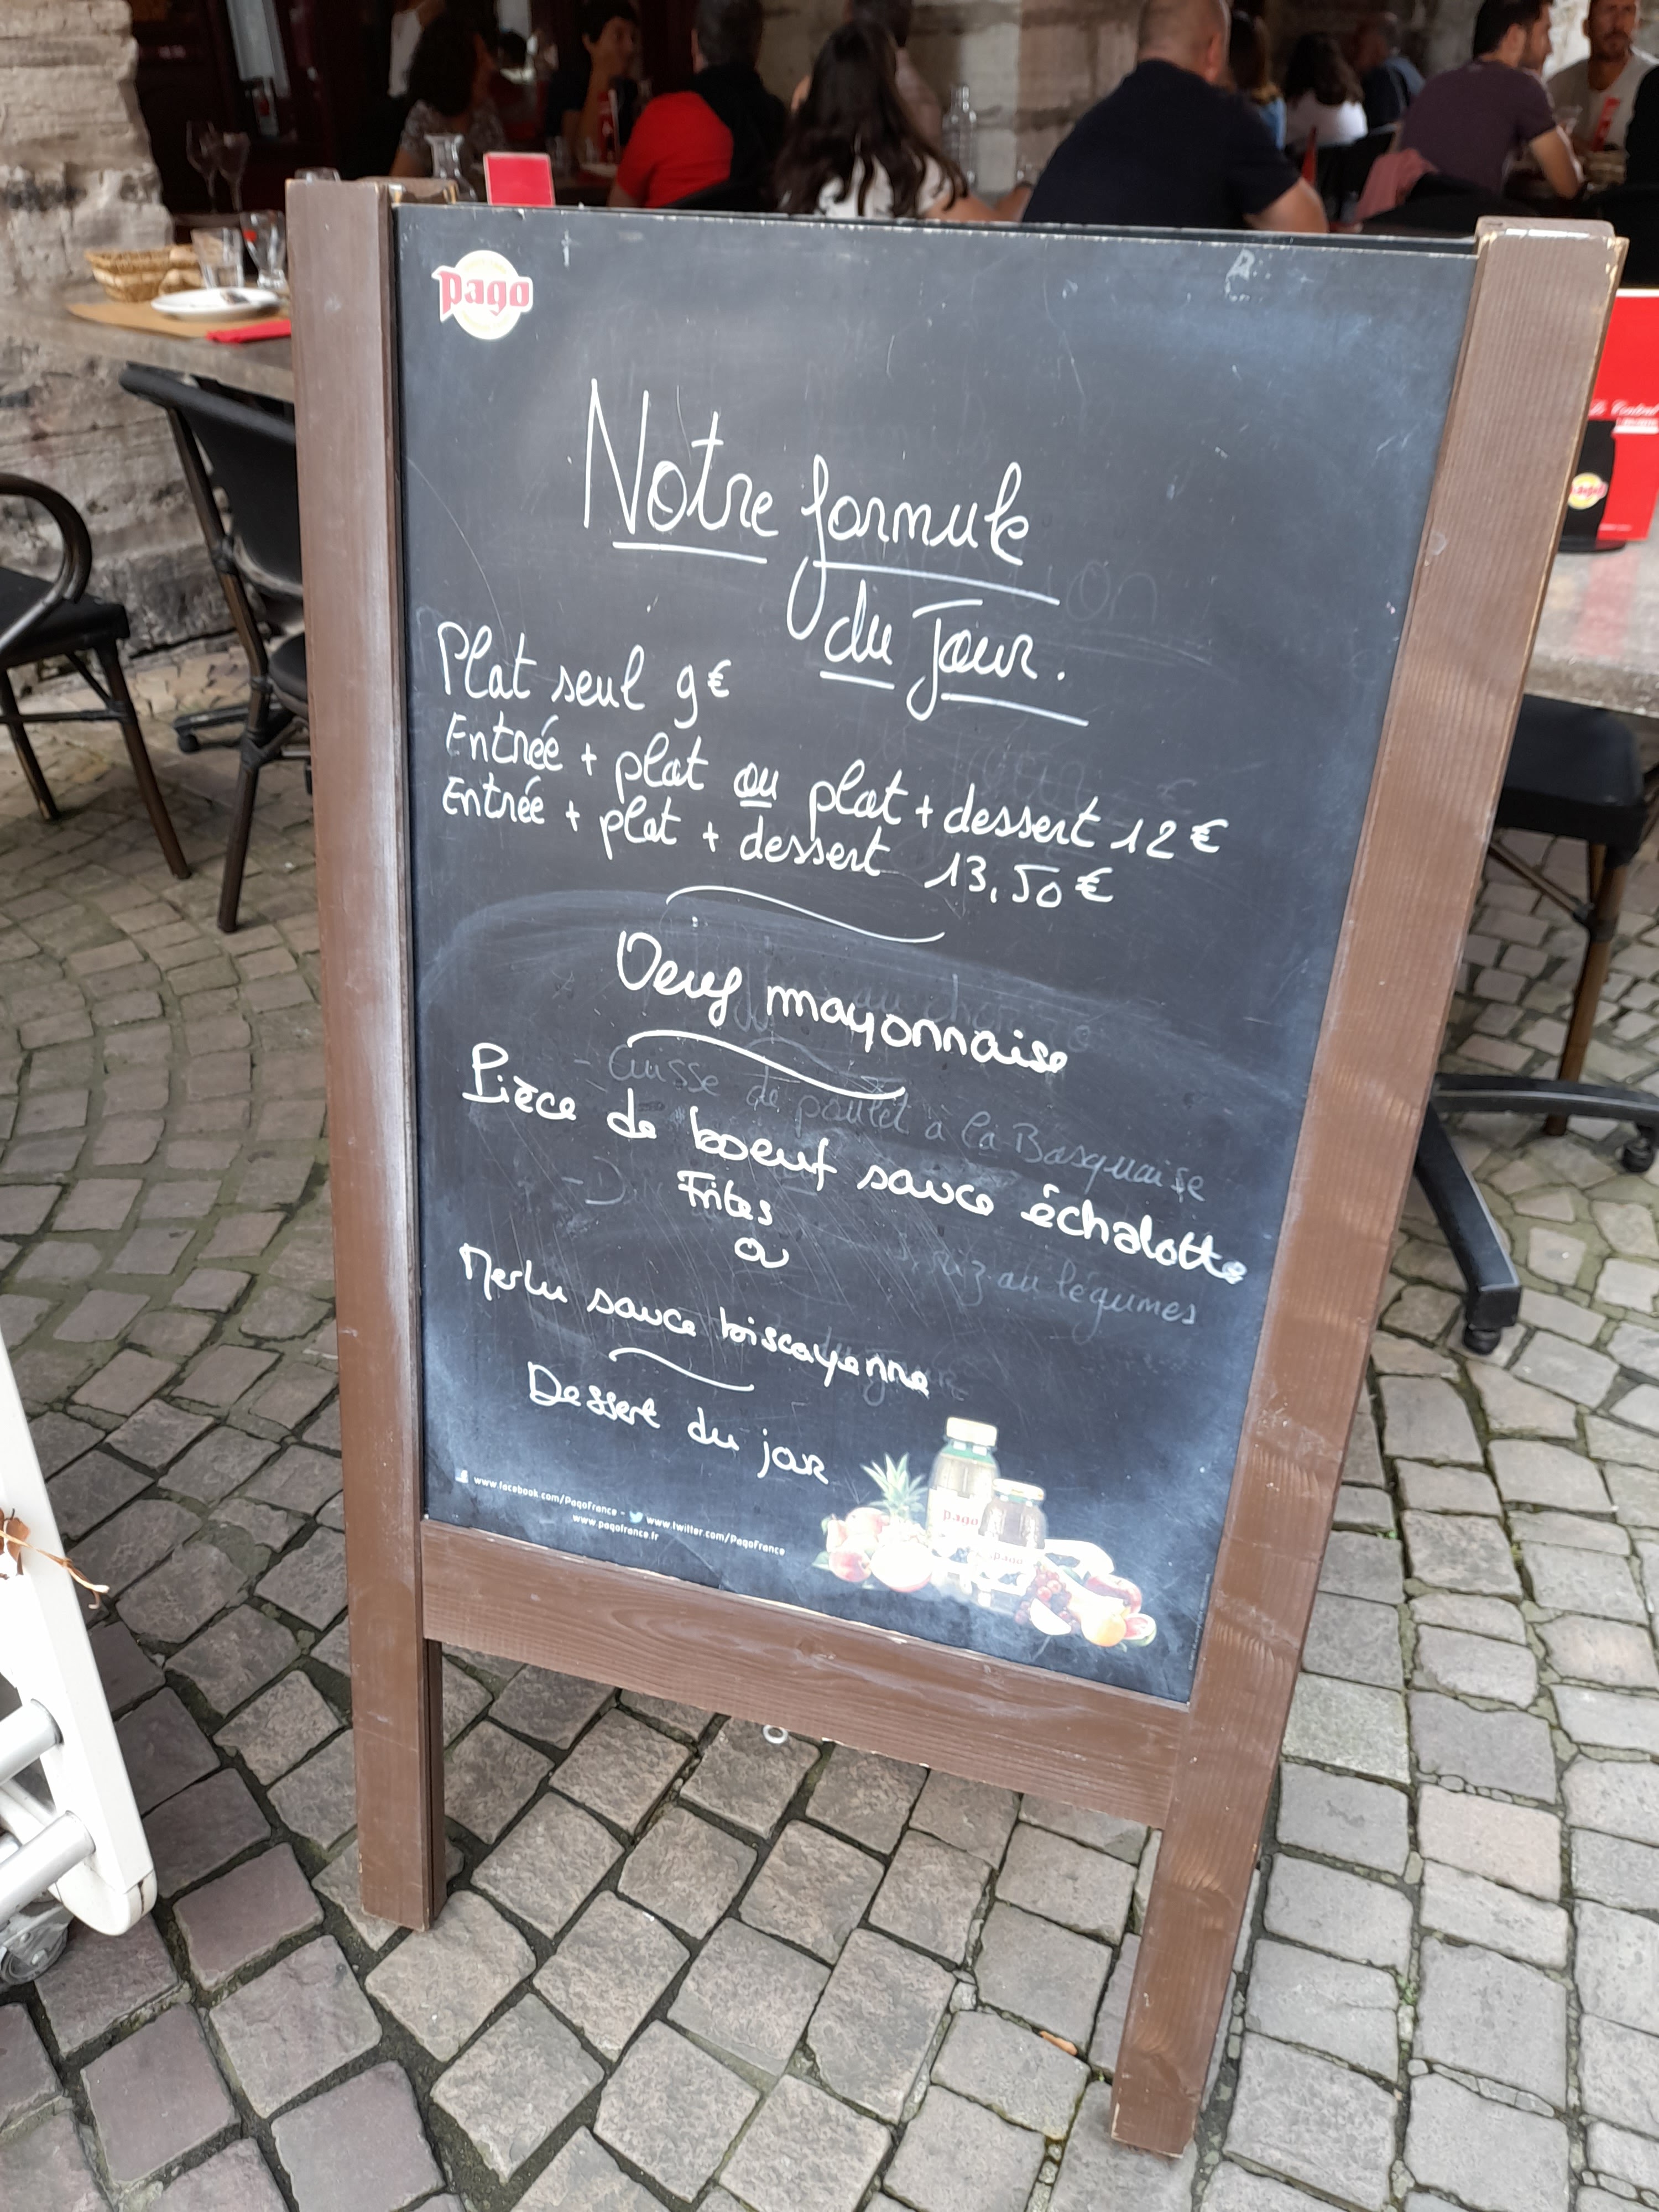 pago
Notre formule
du Jour.
Plat seul 9€
Entrée + plat ou plat + dessert 12€
Entrée + plat + dessert 13,50€
Oeuf mayonnaise
- Cuisse de poulet à la Basquaise
Pièce de boeuf sauce échalotte
Frites
riz au légumes
Merlu sauce biscayenne
Dessert du jour
www.facebook.com/PagoFrance - www.twitter.com/PagoFrance
www.pagofrance.fr
pago
pago
Le Central
pago